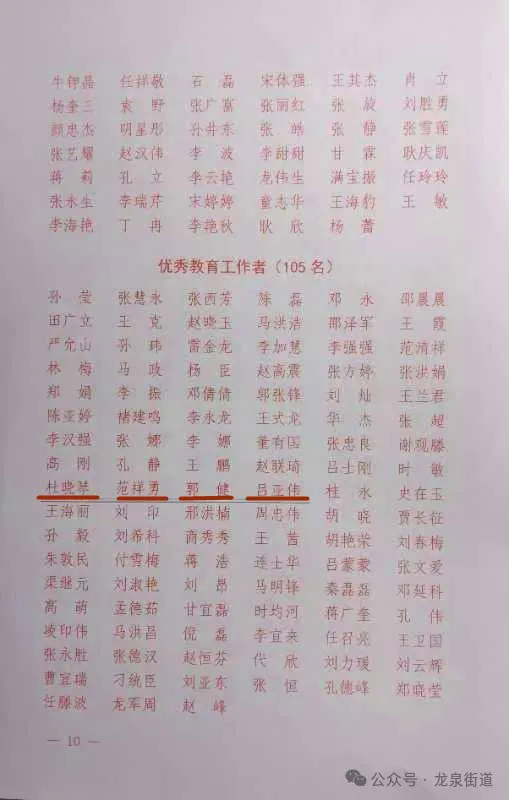 牛钾磊 任祥敬 石磊 宋体强 王其杰 肖立
杨奎三 袁野 张广富 张丽红 张毅 刘胜勇
颜忠杰 明星彤 孙井东 张皓 张静 张雪莲
张艺耀 赵汉伟 李波 李甜甜 甘霖 耿庆凯
蒋莉 孔立 李云艳 龙伟生 满宝振 任玲玲
张永生 李瑞芹 宋婷婷 童志华 王海豹 王敏
李海艳 丁冉 李艳秋 耿欣 杨蕾
优秀教育工作者（105名）
孙莹 张慧永 张西芳 陈磊 邓永 邵晨晨
田广立 王克 赵晓玉 马洪浩 邵泽军 王霞
严允山 孙玮 雷金龙 李加慧 李强强 范清祥
林梅 马政 杨臣 赵高震 张方婷 张洪娟
郑娟 李振 邓倩倩 郭张锋 刘灿 王兰君
陈亚婷 褚建鸣 李永龙 王式龙 华杰 张超
李汉强 张娜 李娜 董有国 张忠良 谢观滕
高刚 孔静 王鹏 赵联琦 吕士刚 时敏
杜晓琴 范祥勇 郭健 吕亚伟 杜永 史在玉
王海丽 刘印 邢洪楠 周忠伟 胡晓 贾长征
孙毅 刘希科 商秀秀 王茜 胡艳荣 刘春梅
朱敦民 付雪梅 蒋浩 连士华 吕蒙蒙 张文爱
渠继元 刘淑艳 刘昂 马明锋 秦磊磊 邓延科
高萌 孟德茹 甘宜磊 时均河 蒋广奎 孔伟
凌印伟 马洪昌 倪磊 李宜来 任召兆 王卫国
张永胜 张德汉 赵恒芬 代欣 刘力瑗 刘云辉
曹宜瑞 刁统臣 刘亚东 张恒 孔德峰 郑晓莹
任滕波 龙军周 赵峰
— 10 —
公众号·龙泉街道